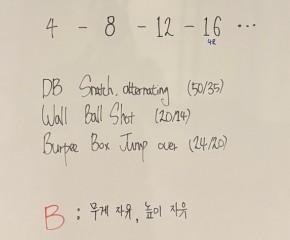 4 - 8 - 12 - 16 ...
4R
DB Snatch, alternating (50/35)
Wall Ball Shot (20/14)
Burpee Box Jump over (24/20)
B : 무게 자유, 높이 자유